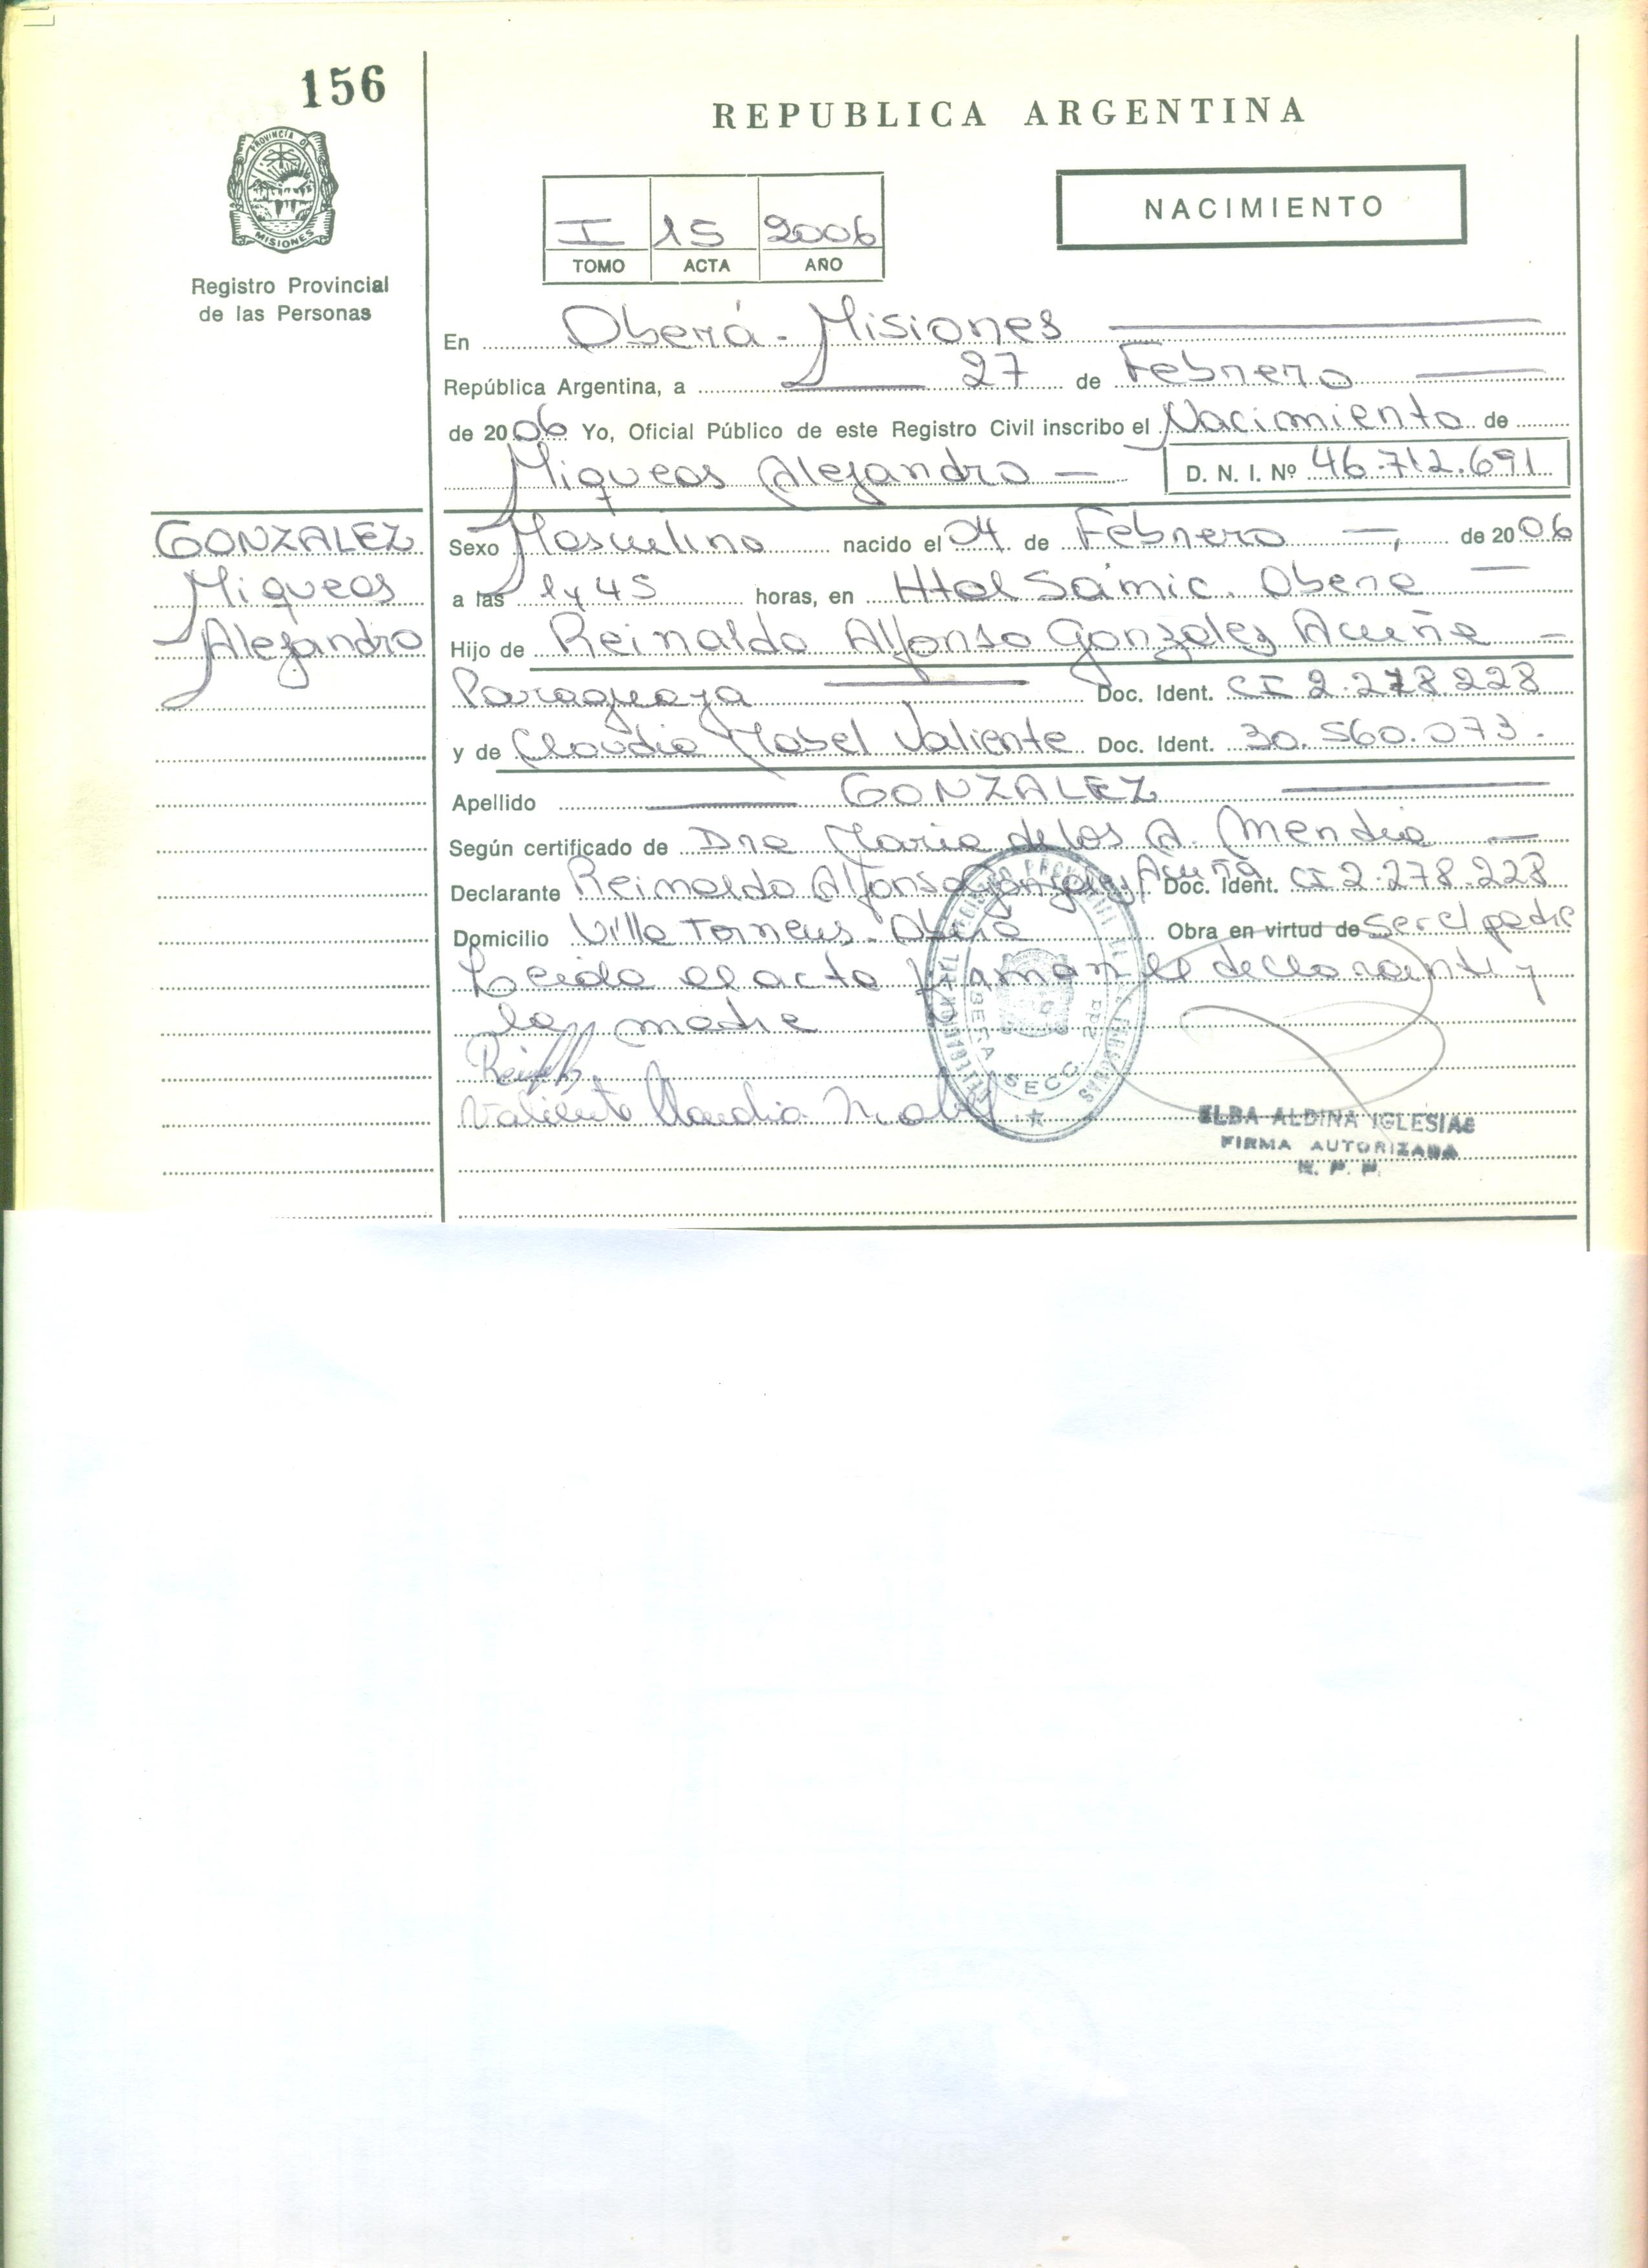 156
REPUBLICA ARGENTINA
PROVINCIA DE
MISIONES
Registro Provincial
de las Personas
I 15 2006
TOMO ACTA AÑO
NACIMIENTO
En Oberá - Misiones
República Argentina, a 27 de Febrero
de 2006 Yo, Oficial Público de este Registro Civil inscribo el Nacimiento de
Miqueas Alejandro D. N. I. Nº 46.712.691
GONZALEZ
Miqueas
Alejandro
Sexo Masculino nacido el 04 de Febrero de 2006
a las 1 y 45 horas, en Htal Sámic. Obera
Hijo de Reinaldo Alfonso Gonzalez Acuña
Paraguaya Doc. Ident. CI 2.278.228
y de Claudia Mabel Valiente Doc. Ident. 30.560.073.
Apellido GONZALEZ
Según certificado de Dra Maria de los A. Mendia
Declarante Reinaldo Alfonso Gonzalez Acuña Doc. Ident. CI 2.278.228
Domicilio Villa Torneus. Oberá Obra en virtud de ser el padre
Leida el acta firman el declarante y
la madre
Valiente Claudia Mabel
OBERA SECC.
ELBA ALDINA IGLESIAS
FIRMA AUTORIZADA
R. P. P.